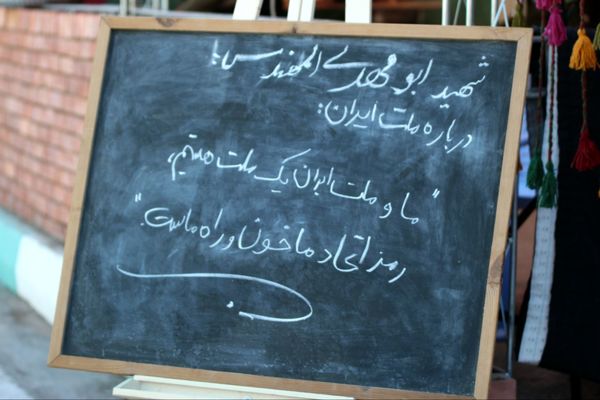 شهید ابو مهدی المهندس
درباره ملت ایران:
"ما و ملت ایران یک ملت هستیم،
رمز اتحاد ما خون و راه ماست."